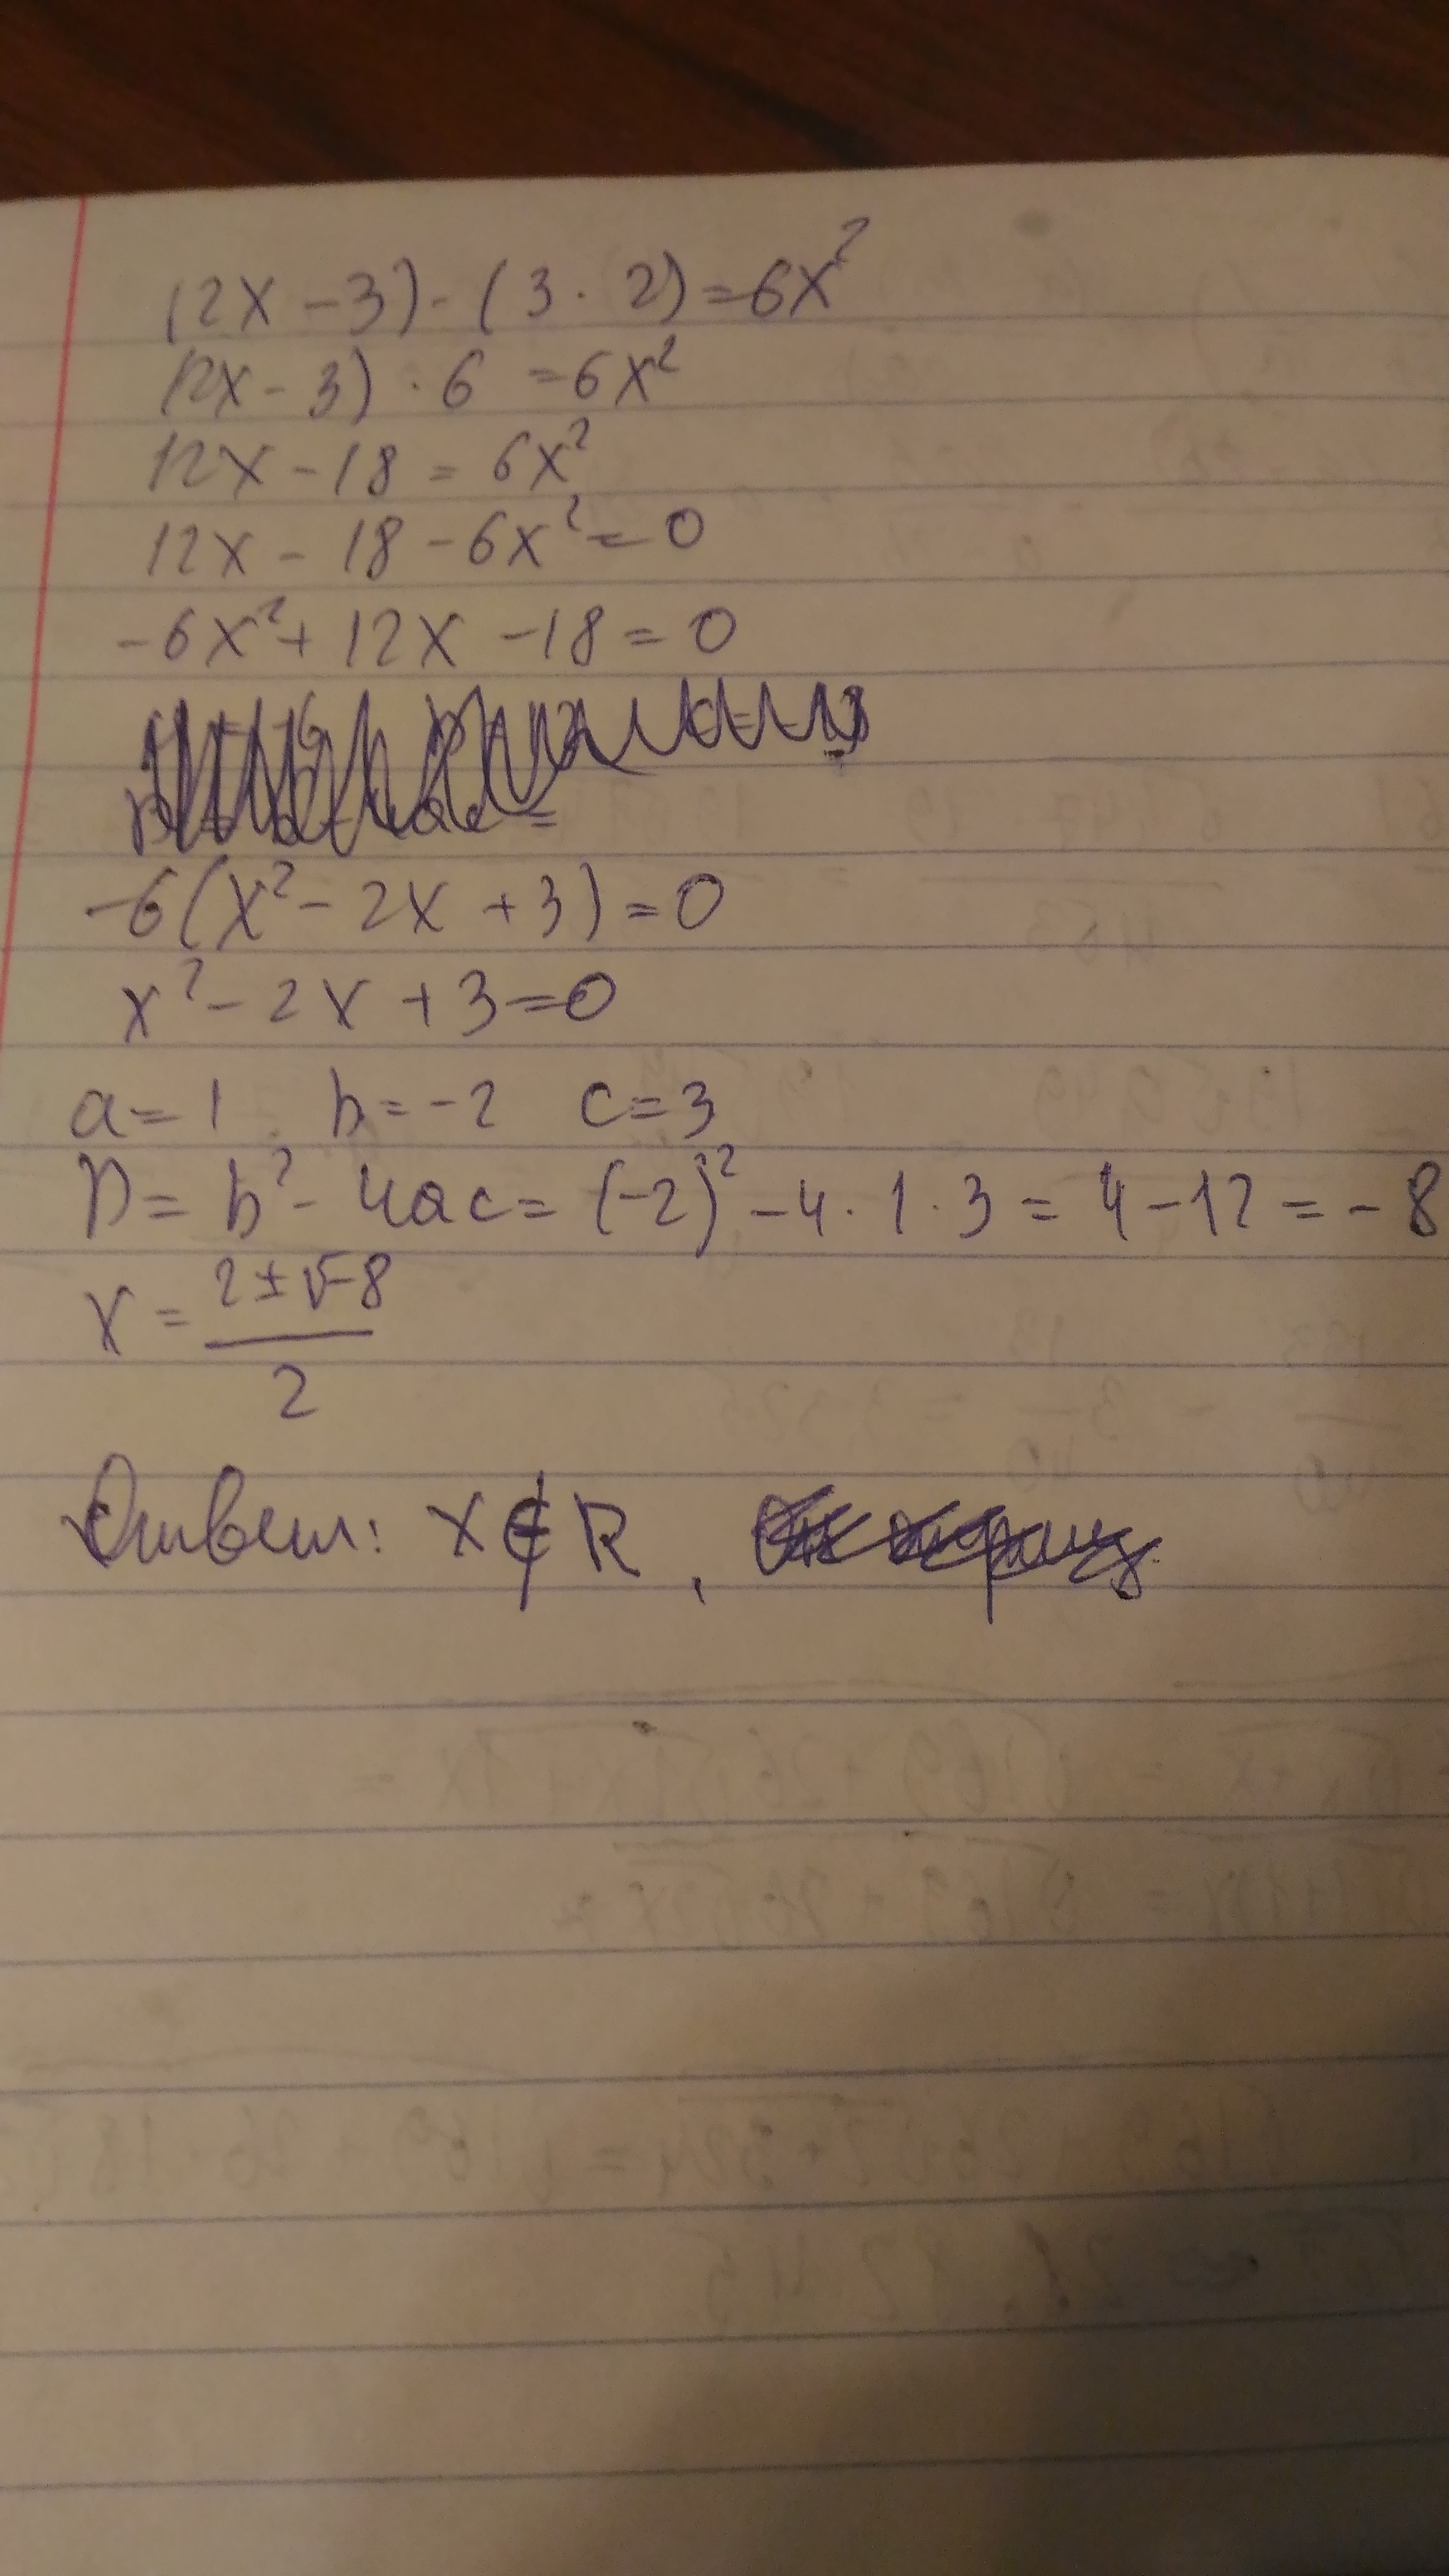 (2x - 3) · (3 · 2) = 6x²
(2x - 3) · 6 = 6x²
12x - 18 = 6x²
12x - 18 - 6x² = 0
-6x² + 12x - 18 = 0
-6(x² - 2x + 3) = 0
x² - 2x + 3 = 0
a = 1 b = -2 c = 3
D = b² - 4ac = (-2)² - 4 · 1 · 3 = 4 - 12 = -8
x = (2 ± √-8) / 2
Ответ: x ∉ R,